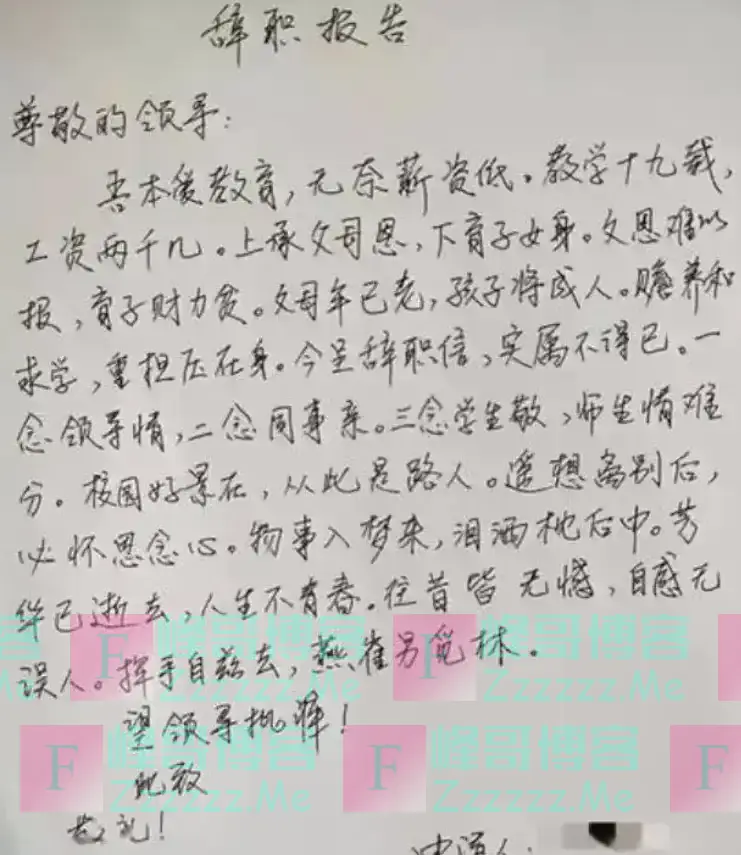 辞职报告
尊敬的领导:
吾本爱教育,无奈薪资低。教学十九载,
工资两千几。上承父母恩,下育子女身。父恩难以
报,育子财力贫。父母年已老,孩子将成人。赡养和
求学,重担压在身。今呈辞职信,实属不得已。一
念领导情,二念同事亲。三念学生敬,师生情难
分。校园好景在,从此是路人。遥想离别后,
必怀思念心。物事入梦来,泪洒枕巾中。芳
华已逝去,人生不青春。往昔皆无憾,自感无
误人。挥手自兹去,燕雀另觅林。
望领导批准!
此致
敬礼!
申请人:
峰哥博客
Zzzzzz.Me
F 峰哥博客
Zzzzzz.Me
F 峰哥博客
Zzzzzz.Me
F 峰哥博客
Zzzzzz.Me
F 峰哥博客
Zzzzzz.Me
F